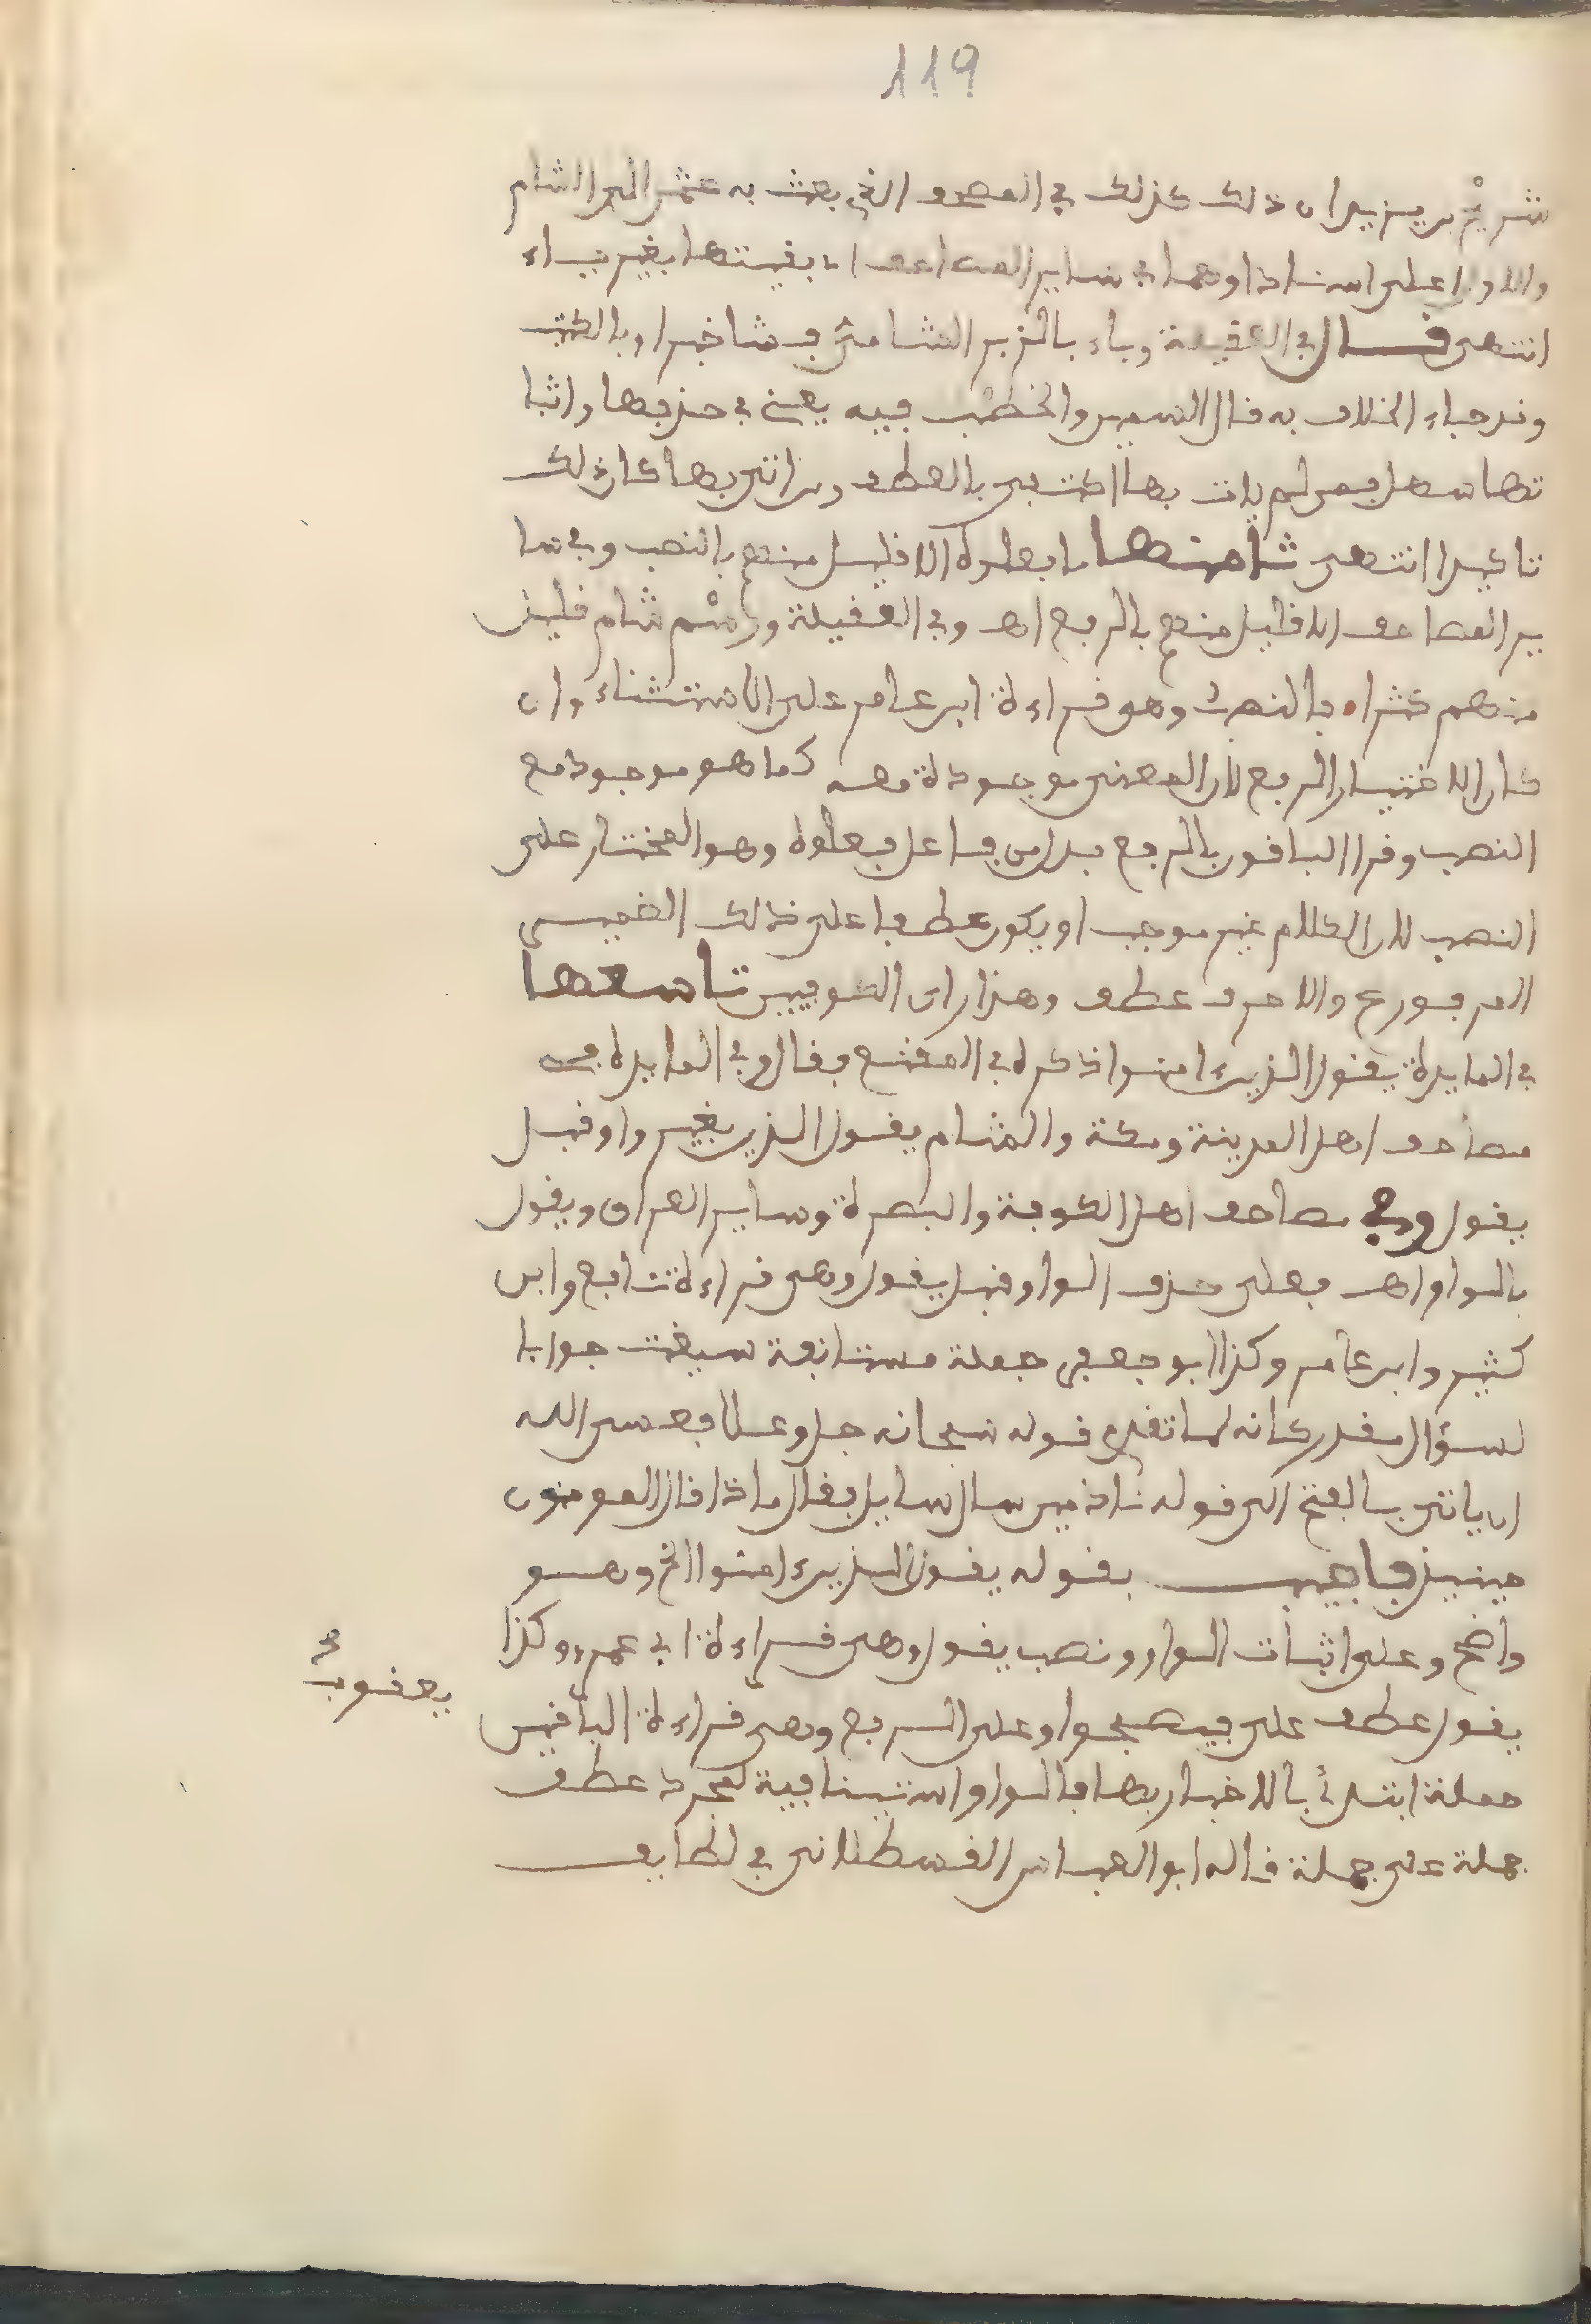 119
شريح بن يزيد ان ذلك كذلك في المصحف الذي بعث به عثمن الى الشام
والاول اعلى اسنادا وهما في ساير المصاحف بغيتها بغير باء
انتهى قال في العقيلة وباء بالزبر الشامي فشا خبرا وبالكتب
وقد جاء الخلاف به قال السمين والخطب فيه يعني في حذفها واثبا
تها سهل فمن لم يات بها اكتفى بالعطف ومن اتى بها كان ذلك
تاكيدا انتهى ثامنها ما فعلوه الا قليل منهم بالنصب وفي سا
ير المصاحف الا قليل منهم بالرفع اهـ وفي العقيلة ورسم شام قليل
منهم كثرا بالنصب وهو قراءة ابن عامر على الاستثناء وان
كان الاختيار الرفع لان المعنى موجودة معه كما هو موجود مع
النصب وقرا الباقون بالرفع بدل من فاعل فعلوه وهو المختار على
النصب لان الكلام غير موجب او يكون عطفا على ذلك الضمير
المرفوع والا حرف عطف وهذا راى الكوفيين تاسعها
في المايدة يقول الذين ءامنوا ذكره في المقنع فقال وفي المايدة في
مصاحف اهل المدينة ومكة والشام يقول الذين بغير واو قبل
يقول وفي مصاحف اهل الكوفة والبصرة وساير العراق ويقول
بالواو اهـ فعلى حذف الواو قبل يقول وهي قراءة نافع وابن
كثير وابن عامر وكذا ابو جعفر جملة مستانفة سيقت جوابا
لسؤال مقدر كانه لما تقدم قوله سبحانه جل وعلا فعسى الله
ان ياتي بالفتح الى قوله نادمين سال سايل فقال ماذا قال المومنون
حينيذ فاجيب بقوله يقول الذين ءامنوا الخ وهو
واضح وعلى اثبات الواو ونصب يقول وهي قراءة ابي عمرو وكذا
يعقوب
يقول عطف على فيصبحوا وعلى الرفع وهي قراءة الباقين
جملة ابتدأ بالاخبار بها فالواو استينافية لمجرد عطف
جملة على جملة قاله ابو العباس القسطلاني في لطايف